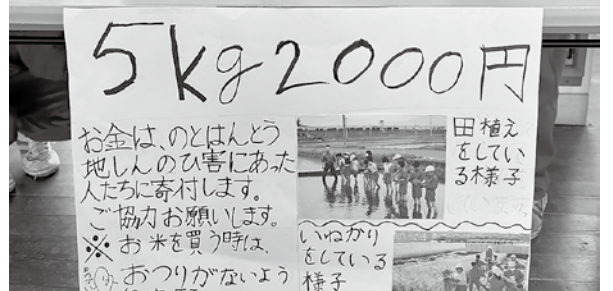 5kg2000円
お金は、のとはんとう
地しんのひ害にあった
人たちに寄付します。
ご協力お願いします。
※お米を買う時は、
おつりがないよう
田植え
をしてい
る様子
いねかり
をしている
様子